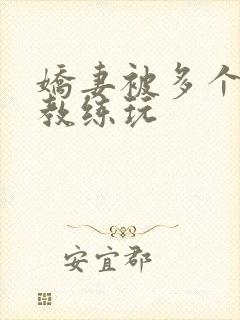 娇妻被多个
教练玩
安宜郡